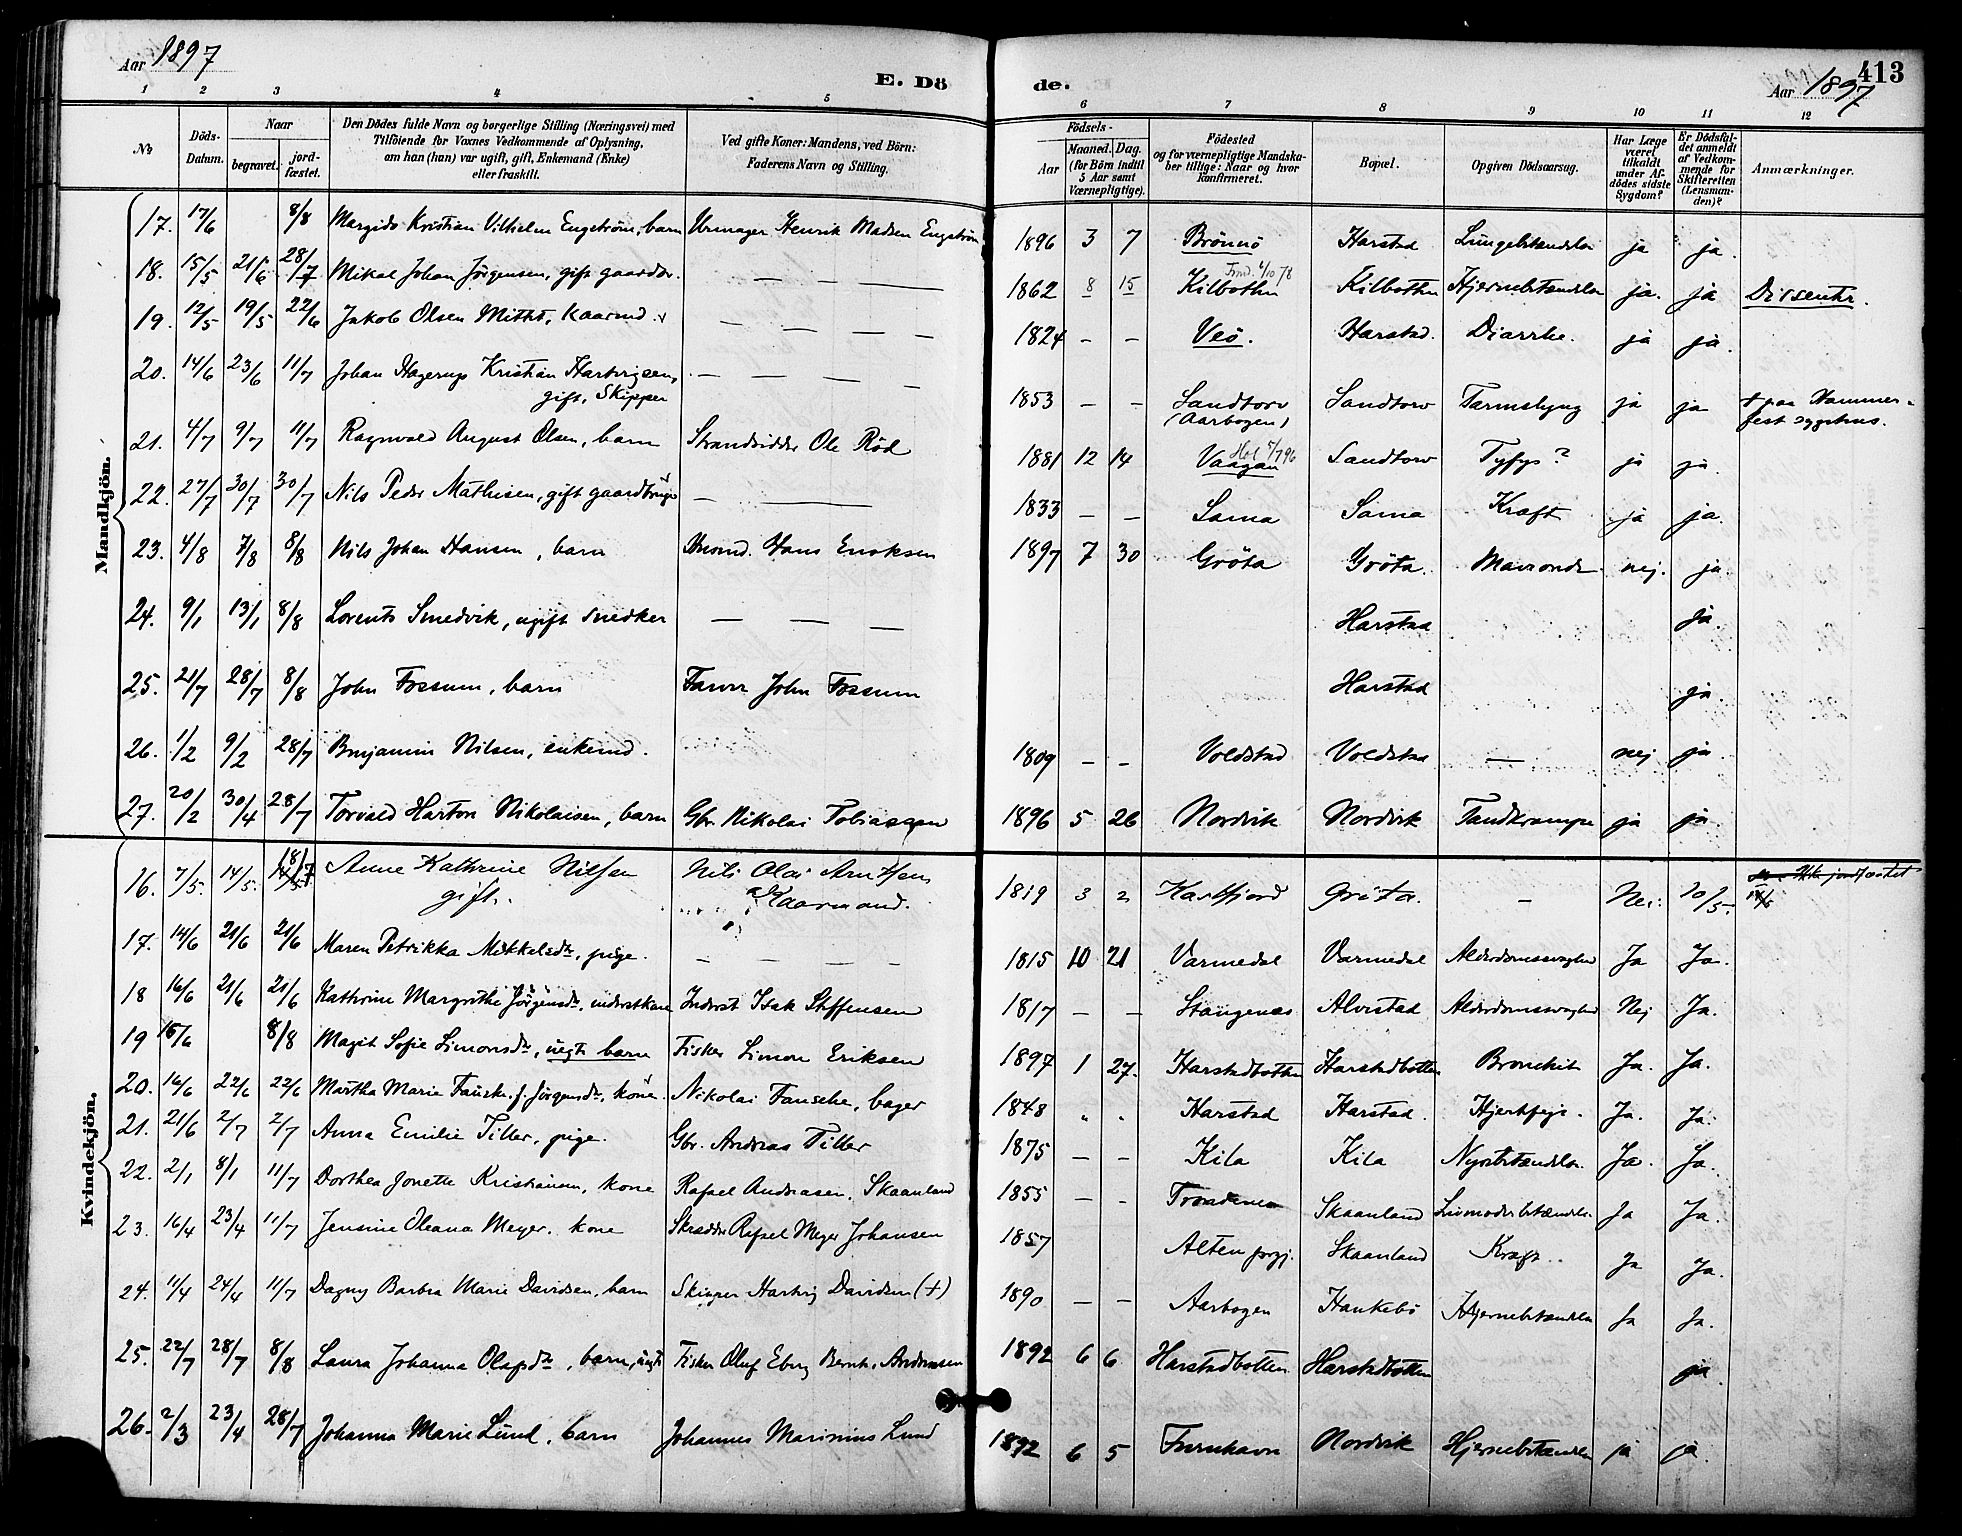 Aar 1897
E. Dö
de.
413
Aar 1897
1 2 3 4 5 6 7 8 9 10 11 12
No
Döds-Datum.
Naar
begravet.
jord-fæstet.
Den Dödes fulde Navn og borgerlige Stilling (Næringsvei) med
Tilföiende for Voxnes Vedkommende af Oplysning,
om han (hun) var ugift, gift, Enkemand (Enke)
eller fraskilt.
Ved gifte Koner: Mandens, ved Börn:
Faderens Navn og Stilling.
Födsels-
Aar
Maaned. Dag.
(for Börn indtil
5 Aar samt
Værnepligtige).
Födested
og for værnepligtige Mandska-
ber tillige: Naar og hvor
konfirmeret.
Bopæl.
Opgiven Dödsaarsag.
Har Læge
været
tilkaldt
under Af-
dödes sidste
Sygdom?
Er Dödsfal-
det anmeldt
af Vedkom-
mende for
Skifteretten
(Lensman-
den)?
Anmærkninger.
Mandkjön.
17. 17/6 8/8 Margido Kristian Vilhelm Engström, barn Urmager Henrik Madsen Engström 1896 3 7 Brönnö Harstad ja ja.
18. 15/5 21/6 28/7 Mikal Johan Jörgensen, gift gaardbr. — — — 1862 8 15 Kilbotten Kilbotten Hjernebetændelse ja. ja
19. 12/5 19/5 22/6 Jakob Olsen Kaarmd. — — — — 1824 — — Veö. Harstad. Diarrhe. ja ja.
20. 14/6 23/6 11/7 Johan Hagerup Kristian Hartvigsen,
gift, Skipper — — — — 1853 — — Sandtorv
(Aarbogen) Sandtorv ja ja + paa Hammer-
fest sygehus.
21. 4/7 9/7 11/7 Ragnvald August Olsen, barn Strandsidder Ole Röd 1881 12 14 Vaagan Sandtorv Tyfus? ja ja.
22. 27/7 30/7 30/7 Nils Peder Mathisen, gift gaardbruger — — 1833 — — Sama Sama Kræft ja ja.
23. 4/8 7/8 8/8 Nils Johan Hansen, barn Hans Enoksen 1897 7 30 Gröta Gröta. nej. ja.
24. 9/1 13/1 8/8 Lorents Smedvik, ugift snedker — — — Harstad ja.
25. 21/7 28/7 8/8 John Fossum, barn Farver John Fossum Harstad ja.
26. 1/2 9/2 28/7 Benjamin Nilsen, enkemd. 1809 — — Voldstad Voldstad — nej ja
27. 20/2 30/4 28/7 Torvald Harton Nikolaisen, barn Gbr. Nikolai Tobiassen 1896 5 26 Nordvik Nordvik Tandkrampe ja ja.
Kvindekjön.
16. 7/5. 14/5. 18/7 Anne Kathrine Nilsen
gift. Nils Olai Arntsen
Kaarmand. 1819 3 2 Kastfjord Gröta. — Nei. 20/5. jordfæstet
14/5
17. 14/6 21/6 21/6 Maren Petrikka Mikkelsdtr, pige. — — — — 1815 10 21 Varmedal Varmedal Alderdomssvaghed Ja Ja.
18 16/6 21/6 21/6 Kathrine Margrethe Jörgensdtr, inderstkone Inderst Isak Steffensen 1817 — — Stangenæs Alvestad Alderdomssvaghed Nej Ja.
19 15/6 8/8 Magit Sofie Simonsdtr, uegte barn Fisker Simon Eriksen 1897 1 27. Harstadbotten Harstadbotten Bronchit Ja. Ja.
20. 16/6 22/6 22/6 Martha Marie Fauske f. Jörgensdtr, kone. Nikolai Fauske, bager 1848 " " Harstad Harstad. Hjertefeje. Ja. Ja.
21. 21/6 2/7 2/7 Anna Emilie Tiller, pige. Gbr. Andreas Tiller 1875 — — Kila Kila Nyrebetændelse. Ja. Ja.
22. 2/1 8/1 11/7 Dorthea Jonette Kristiansen, kone Rafael Andreasen, Skaanland 1855 — — Trondenes Skaanland Livmoderbetændelse. Ja Ja.
23. 16/4 23/4 11/7 Jensine Oleana Meyer. kone Skrædder Rafael Meyer Johansen 1857 Alten prgj. Skaanland Kræft.. Ja Ja.
24. 11/4 24/4 11/7 Dagny Barbra Marie Davidsen, barn Skipper Hartvig Davidsen (+) 1890 — — Aarbogen Hankebö Hjernebetændelse Ja Ja.
25. 22/7 28/7 8/8 Laura Johanna Olafsdtr, barn, uegte Fisker Oluf Eberg Bernh. Andreassen 1892 6 6 Harstadbotten Harstadbotten ja.
26. 2/3 23/4 28/7 Johanna Marie Lund, barn Johannes Marinius Lund 1892 6 5 Nordvik Hjernebetændelse ja ja.